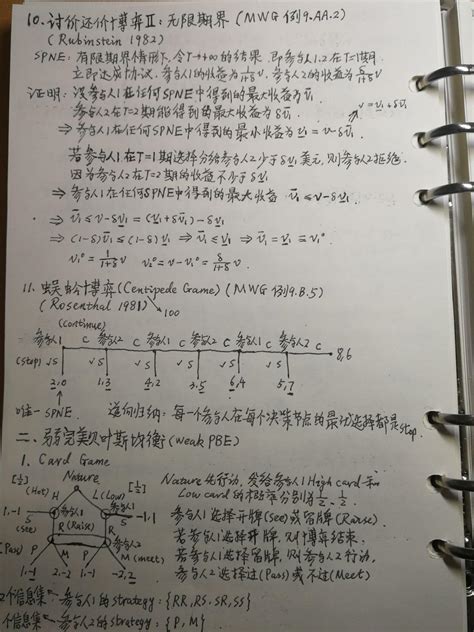 10. 讨价还价博弈Ⅱ：无限期界 (MWG 例9.AA.2)
(Rubinstein 1982)
SPNE：有限期界情形下，令T→+∞的结果，即参与人1,2在T=1期
立即达成协议，参与人1的收益为 1/(1+δ) v，参与人2的收益为 δ/(1+δ) v
证明：设参与人1在任何SPNE中得到的最大收益为 v̄₁
参与人2在T=2期能得到的最大收益为 δv̄₁
v = v̲₁ + δv̄₁
⇒ 参与人1在任何SPNE中得到的最小收益为 v̲₁ = v - δv̄₁
若参与人1在T=1期选择分给参与人2少于 δv̲₁ 美元，则参与人2拒绝
因为参与人2在T=2期的收益不少于 δv̲₁
⇒ 参与人1在任何SPNE中得到的最大收益 v̄₁ ≤ v - δv̲₁
⇒ v̄₁ ≤ v - δv̲₁ = (v̲₁ + δv̄₁) - δv̲₁
⇒ (1-δ)v̄₁ ≤ (1-δ)v̲₁ ⇒ v̄₁ ≤ v̲₁ ⇒ v̄₁ = v̲₁ = v₁°
v₁° = 1/(1+δ) v v₂° = v - v₁° = δ/(1+δ) v
11. 蜈蚣博弈 (Centipede Game) (MWG 例9.B.5)
(Rosenthal 1981) 100
(continue)
参与人1 C 参与人2 C 参与人1 C 参与人2 C 参与人1 C 参与人2 C 8,6
(stop) ✓S ✓S ✓S ✓S ✓S ✓S
2,0 1,3 4,2 3,5 6,4 5,7
唯一SPNE 逆向归纳：每一个参与人在每个决策节点的最优选择都是stop.
二、弱完美贝叶斯均衡 (weak PBE)
1. Card Game
Nature
[½] H L(Low) [½]
(Hot) 参与人1
1,-1 S (See) R (Raise) R S -1,1
参与人2
(Pass) P M P M (meet)
1,-1 2,-2 1,-1 -2,2
Nature先行动，发给参与人1 High card和
Low card的概率分别为 ½、½.
参与人1选择开牌(See)或留牌(Raise).
若参与人1选择开牌，则博弈结束.
若参与人1选择留牌，则参与人2行动，
参与人2选择过(Pass)或不过(Meet)
2个信息集←参与人1的strategy：{RR, RS, SR, SS}
个信息集←参与人2的strategy：{P, M}